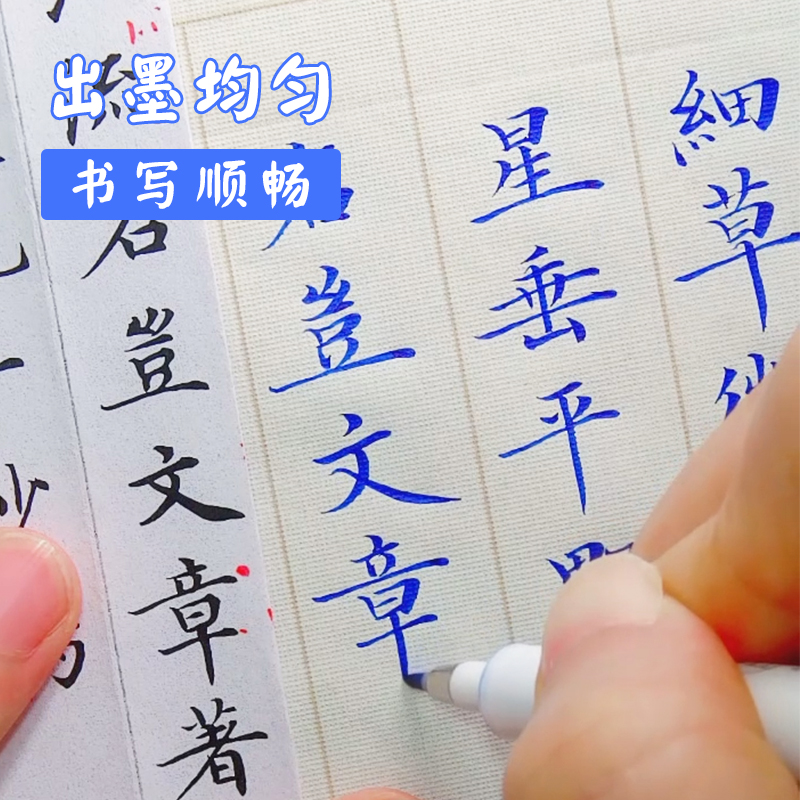 出墨均匀
书写顺畅
細草
星垂平
名豈文章
名豈文章著